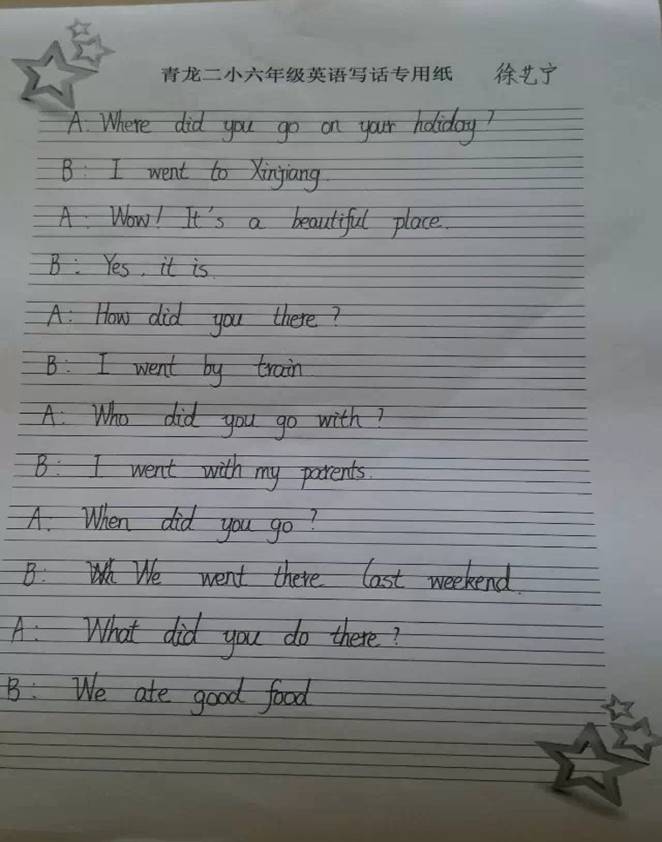 青龙二小六年级英语写话专用纸 徐艺宁
A: Where did you go on your holiday?
B: I went to Xinjiang.
A: Wow! It's a beautiful place.
B: Yes, it is.
A: How did you there?
B: I went by train
A: Who did you go with?
B: I went with my parents.
A: When did you go?
B: We went there last weekend.
A: What did you do there?
B: We ate good food